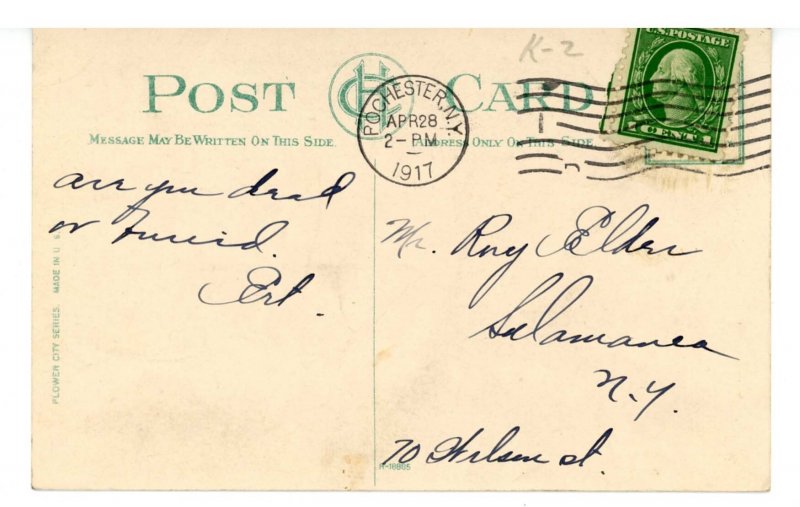 K-2
U.S. POSTAGE
1 CENT 1
POST CARD
MESSAGE MAY BE WRITTEN ON THIS SIDE.
ADDRESS ONLY ON THIS SIDE.
ROCHESTER, N.Y.
APR 28
2-PM
1917
are you dead
or
Art.
Mr. Roy Elder
Salamanca
N.Y.
70 Wilson st.
FLOWER CITY SERIES. MADE IN U.S.
R-18805